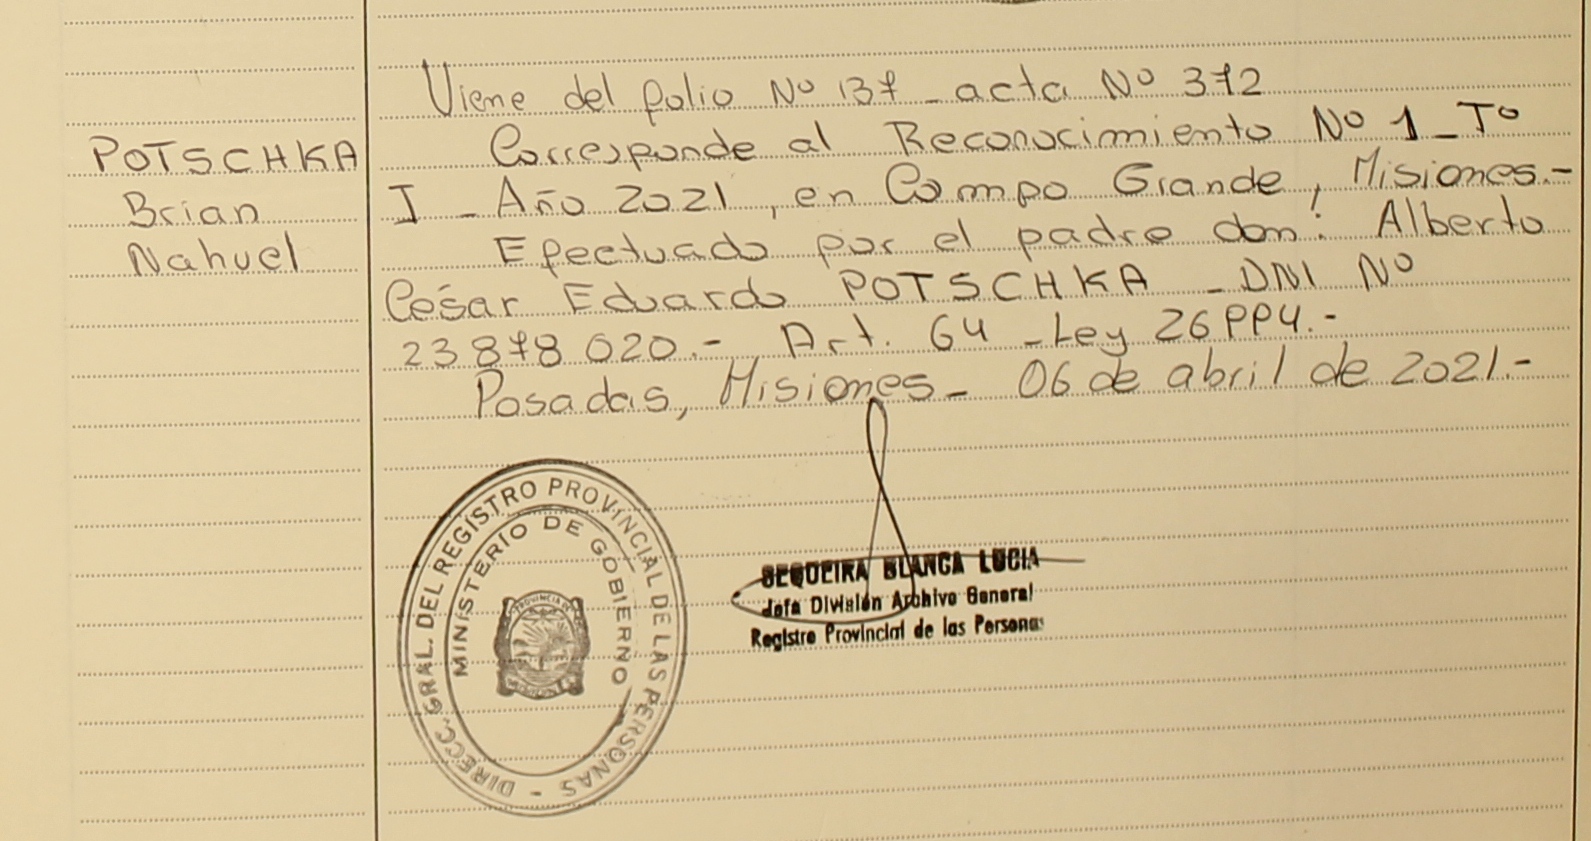 Viene del folio Nº 137 - acta Nº 372
POTSCHKA
Brian
Nahuel
Corresponde al Reconocimiento Nº 1 - Tº
I - Año 2021, en Campo Grande, Misiones.-
Efectuado por el padre don: Alberto
César Eduardo POTSCHKA - DNI Nº
23.878.020.- Art. 64 - Ley 26994.-
Posadas, Misiones - 06 de abril de 2021.-
DIRECC. GRAL. DEL REGISTRO PROVINCIAL DE LAS PERSONAS -
MINISTERIO DE GOBIERNO
PROVINCIA DE
MISIONES
SEQUEIRA BLANCA LUCIA
Jefa División Archivo General
Registro Provincial de las Personas